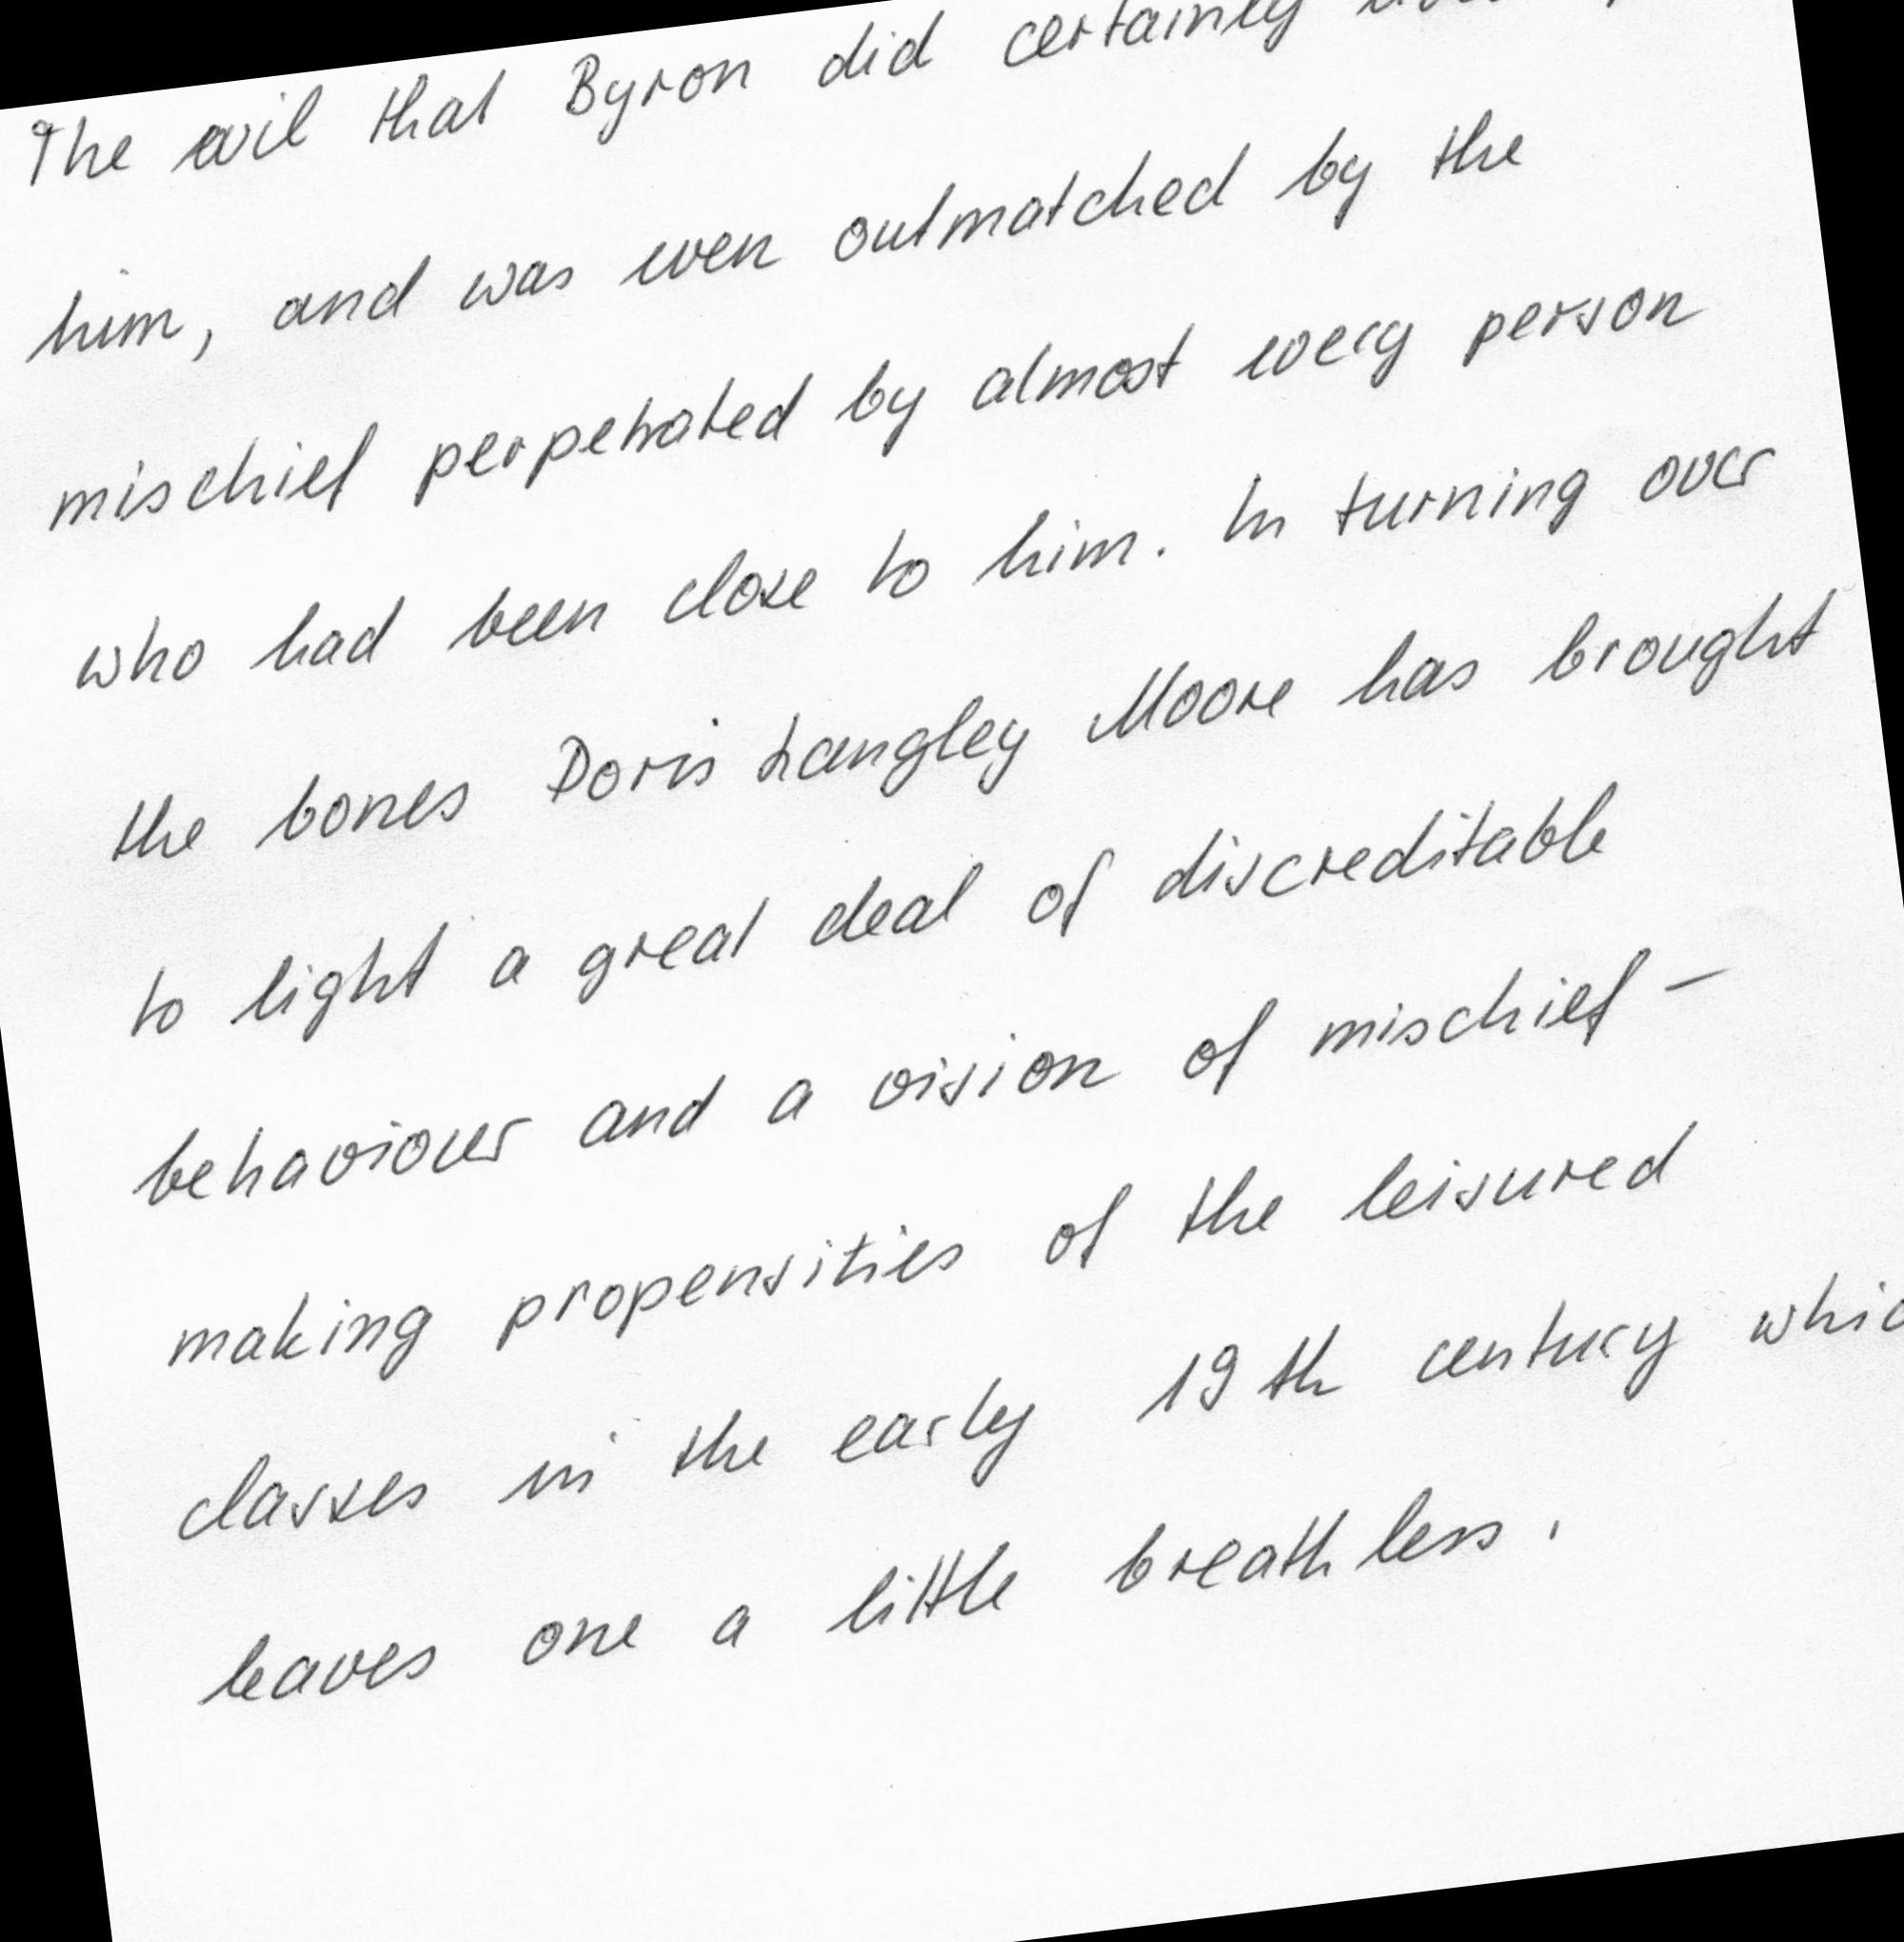 The evil that Byron did certainly
him, and was even outmatched by the
mischief perpetrated by almost every person
who had been close to him. In turning over
the bones Doris Langley Moore has brought
to light a great deal of discreditable
behaviour and a vision of mischief -
making propensities of the leisured
classes in the early 19th century
leaves one a little breathless.